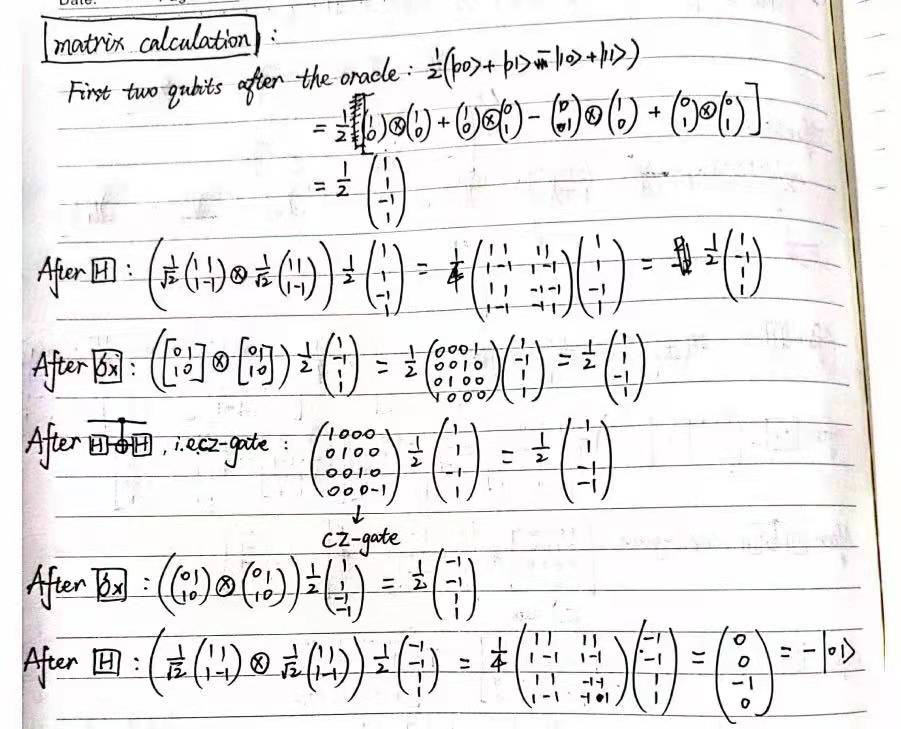 Date:
matrix calculation :
First two qubits after the oracle : 1/2(|00> + |01> − |10> + |11>)
= 1/2 [(1 0) ⊗ (1 0) + (1 0) ⊗ (0 1) − (0 1) ⊗ (1 0) + (0 1) ⊗ (0 1)].
= 1/2 (1 1 -1 1)
After H : (1/√2 (1 1 1 -1) ⊗ 1/√2 (1 1 1 -1)) 1/2 (1 1 -1 1) = 1/4 (1 1 1 1 1 -1 1 -1 1 1 -1 -1 1 -1 -1 1) (1 1 -1 1) = 1/2 (1 -1 1 1)
After σx : ([0 1 1 0] ⊗ [0 1 1 0]) 1/2 (1 -1 1 1) = 1/2 (0 0 0 1 0 0 1 0 0 1 0 0 1 0 0 0) (1 -1 1 1) = 1/2 (1 1 -1 1)
After H ⊕ H , i.e cz-gate : (1 0 0 0 0 1 0 0 0 0 1 0 0 0 0 -1) 1/2 (1 1 -1 1) = 1/2 (1 1 -1 -1)
↓
CZ-gate
After σx : ((0 1 1 0) ⊗ (0 1 1 0)) 1/2 (1 1 -1 -1) = 1/2 (-1 -1 1 1)
After H : (1/√2 (1 1 1 -1) ⊗ 1/√2 (1 1 1 -1)) 1/2 (-1 -1 1 1) = 1/4 (1 1 1 1 1 -1 1 -1 1 1 -1 -1 1 -1 -1 1) (-1 -1 1 1) = (0 0 -1 0) = − |01>